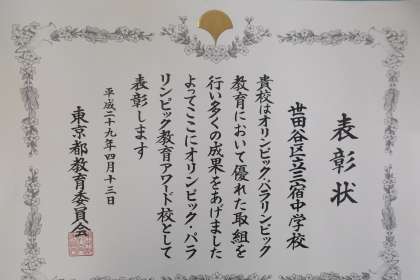 表彰状
世田谷区立三宿中学校
貴校はオリンピック・パラリンピック
教育において優れた取組を
行い多くの成果をあげました
よってここにオリンピック・パラ
リンピック教育アワード校として
表彰します
平成二十九年四月十三日
東京都教育委員会